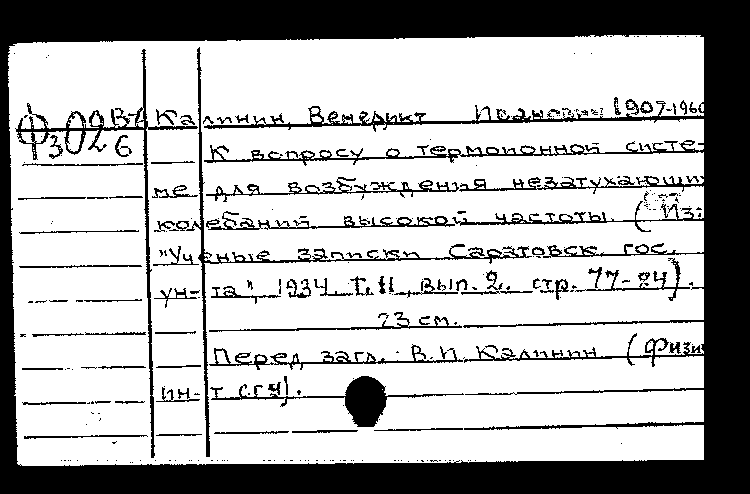 Ф3026 В-1 Калинин, Венедикт Иванович 1907-1960
К вопросу о термоионной систе-
ме для возбуждения незатухающи
колебаний высокой частоты. (Из:
"Ученые записки Саратовск. гос.
ун-та", 1934, Т. 11, вып. 2. стр. 77-84).
23 см.
Перед загл.: В.И. Калинин (Физи
ин-т СГУ).